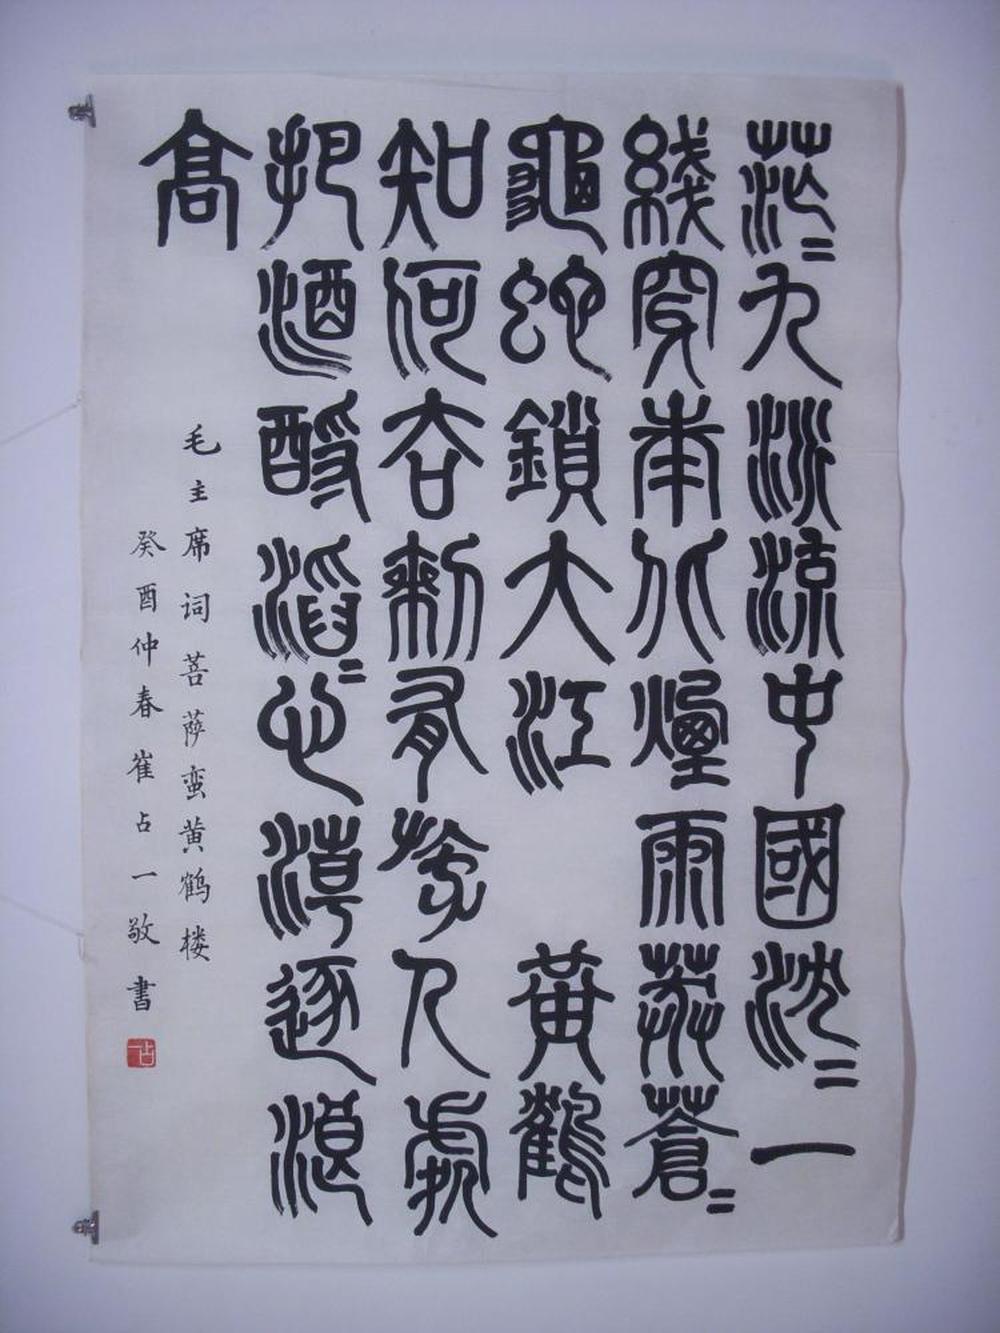 茫〻九派流中國沈〻一
綫穿南北煙雨莽蒼〻
龜蛇鎖大江 黃鶴
知何去剩有斿人處
把酒酹滔〻心潮逐浪
高
毛主席词菩萨蛮黄鹤楼
癸酉仲春崔占一敬書
占一